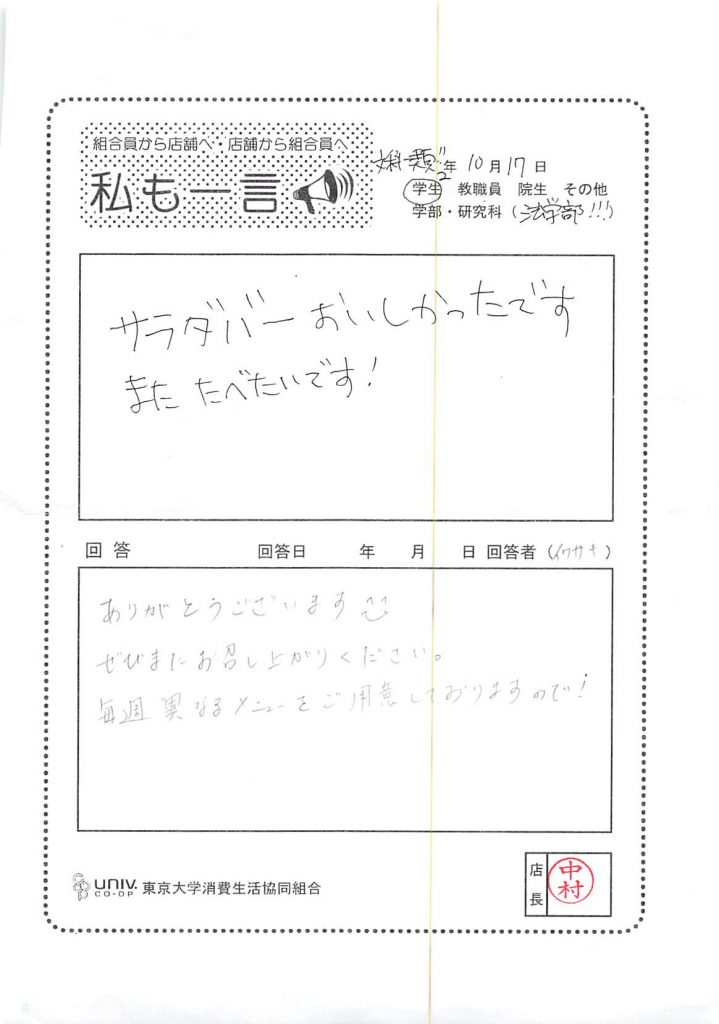 組合員から店舗へ・店舗から組合員へ
私も一言
年 10月 17日
学生 教職員 院生 その他
学部・研究科 (法学部!!!)
サラダバーおいしかったです
また たべたいです!
回答 回答日 年 月 日 回答者 (イワサキ)
ありがとうございます
ぜひまたお召し上がりください。
毎週異なるメニューをご用意しておりますので!
UNIV. CO-OP 東京大学消費生活協同組合
店長 中村